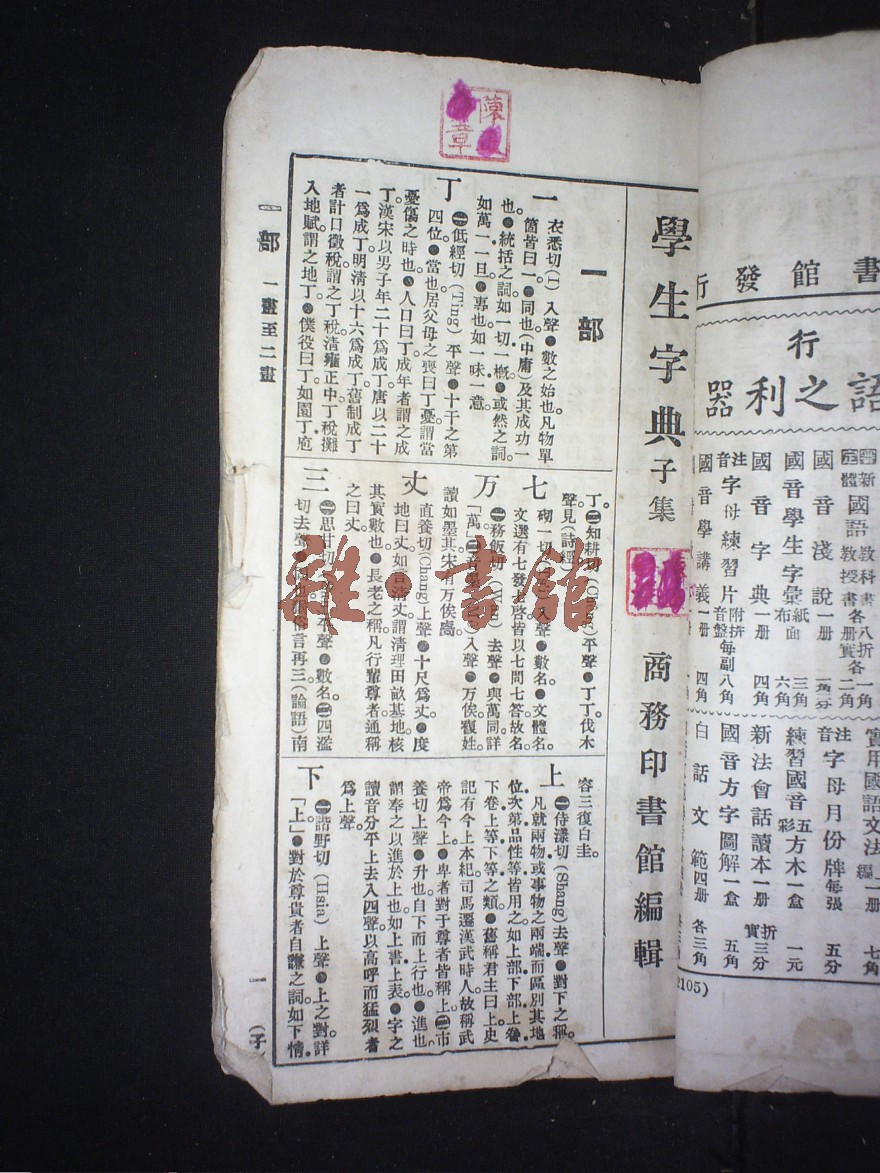 書館發行
行
語之利器
新
國語
教科書八折
教授書各册實
各
一角
二角
國音淺說一册
國音學生字彙
紙面
布
三角
六角
國音字典一册
四角
注音字母練習片
附拼音盤
每副八角
國音學講義一册
四角
實用國語文法
七角
注音字母月份牌
每張
五分
練習國音五彩方木一盒
一元
新法會話讀本一册
實折三分
國音方字圖解一盒
五角
白話文範四册
各三角
2105)
學生字典子集
商務印書館編輯
一部
一
衣悉切(I)入聲●數之始也凡物單
箇皆曰一●同也(中庸)及其成功一
也●統括之詞如一切一概●或然之詞
如萬一一旦●專也如一味一意
丁
㊀低經切(Ting)平聲●十干之第
四位●當也居父母之喪曰丁憂謂當
憂傷之時也●人口曰丁成年者謂之成
丁漢宋以男子年二十爲成丁唐以二十
一爲成丁明清以十六爲成丁舊制成丁
者計口徵稅謂之丁稅清雍正中丁稅攤
入地賦謂之地丁●僕役曰丁如園丁庖
丁㊁知耕切
平聲●丁丁伐木
聲見(詩經)
七
砌一切
入聲●數名●文體名
文選有七發七啓皆以七問七答故名
万
㊀務飯切
去聲●與萬同詳
「萬」㊁音
入聲●万俟複姓
讀如墨其宋有万俟卨
丈
直養切(Chang)上聲●十尺爲丈●度
地曰丈如言清丈謂清理田畝基地核
其實數也●長老之稱凡行輩尊者通稱
之曰丈
三
㊀思甘切
平聲●數名㊁四濫
切去聲
俗言再三(論語)南
容三復白圭
上
㊀侍漾切(Shang)去聲●對下之稱
凡就兩物或事物之兩端而區別其地
位次第品性等皆用之如上部下部上卷
下卷上等下等之類●舊稱君主曰上史
記有今上本紀司馬遷漢武時人故稱武
帝爲今上●卑者對于尊者皆稱上㊁市
養切上聲●升也自下而上行也●進也
謂奉之以進於上也如上書上表●字之
讀音分平上去入四聲以高呼而猛烈者
爲上聲
下
㊀諧野切(Hsia)上聲●上之對詳
「上」●對於尊貴者自謙之詞如下情
一部
一畫至二畫
一
(子
陳
章
雜·書館